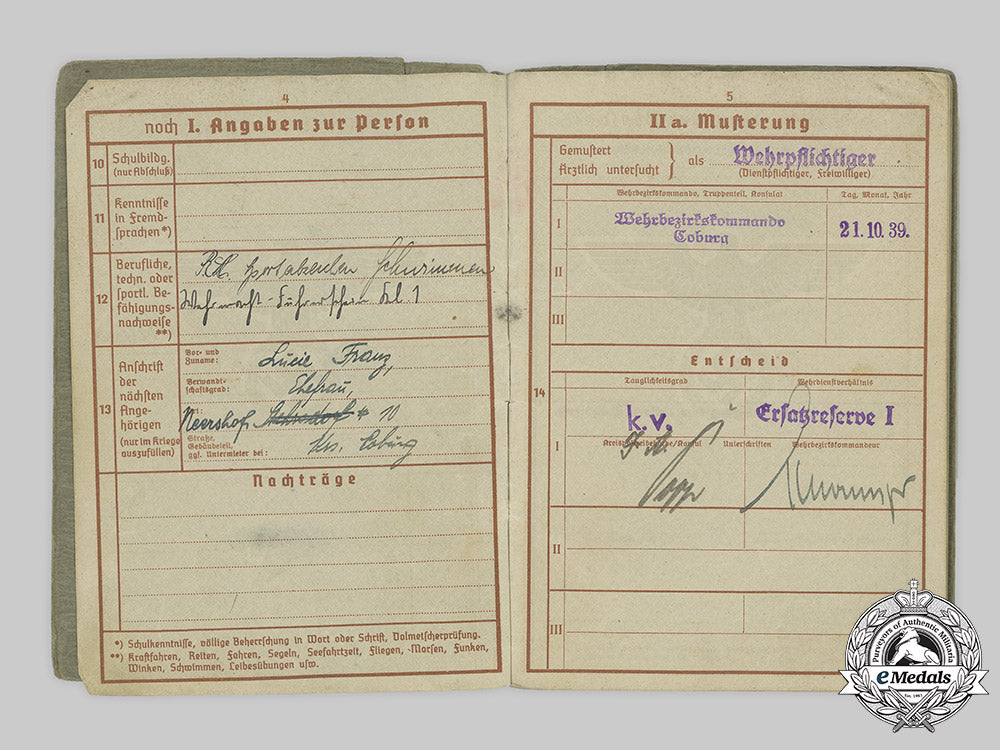 4
noch I. Angaben zur Person
10 Schulbildg.
(nur Abschluß)
11 Kenntnisse
in Fremd-
sprachen*)
12 Berufliche,
techn. oder
sportl. Be-
fähigungs-
nachweise
**)
Schwimmen
Wehrmacht-Führerschein Kl 1
13 Anschrift
der
nächsten
Ange-
hörigen
(nur im Kriege
auszufüllen)
Vor- und
Zuname:
Lucie Franz,
Verwandt-
schaftsgrad:
Ehefrau,
Ort:
Neershof 10
Straße,
Gebäudeteil,
ggf. Untermieter bei:
Krs. Coburg
Nachträge
*) Schulkenntnisse, völlige Beherrschung in Wort oder Schrift, Dolmetscherprüfung.
**) Kraftfahren, Reiten, Fahren, Segeln, Seefahrtzeit, Fliegen, -Morsen, Funken,
Winken, Schwimmen, Leibesübungen usw.
5
IIa. Musterung
Gemustert
Ärztlich untersucht } als Wehrpflichtiger
(Dienstpflichtiger, Freiwilliger)
Wehrbezirkskommando, Truppenteil, Konsulat
Tag, Monat, Jahr
I Wehrbezirkskommando
Coburg
21.10.39.
II
III
Entscheid
14
Tauglichkeitsgrad
Wehrdienstverhältnis
k.v.
Ersatzreserve I
I
Unterschriften
Wehrbezirkskommandeur
II
III
Purveyors of Authentic Militaria
eMedals